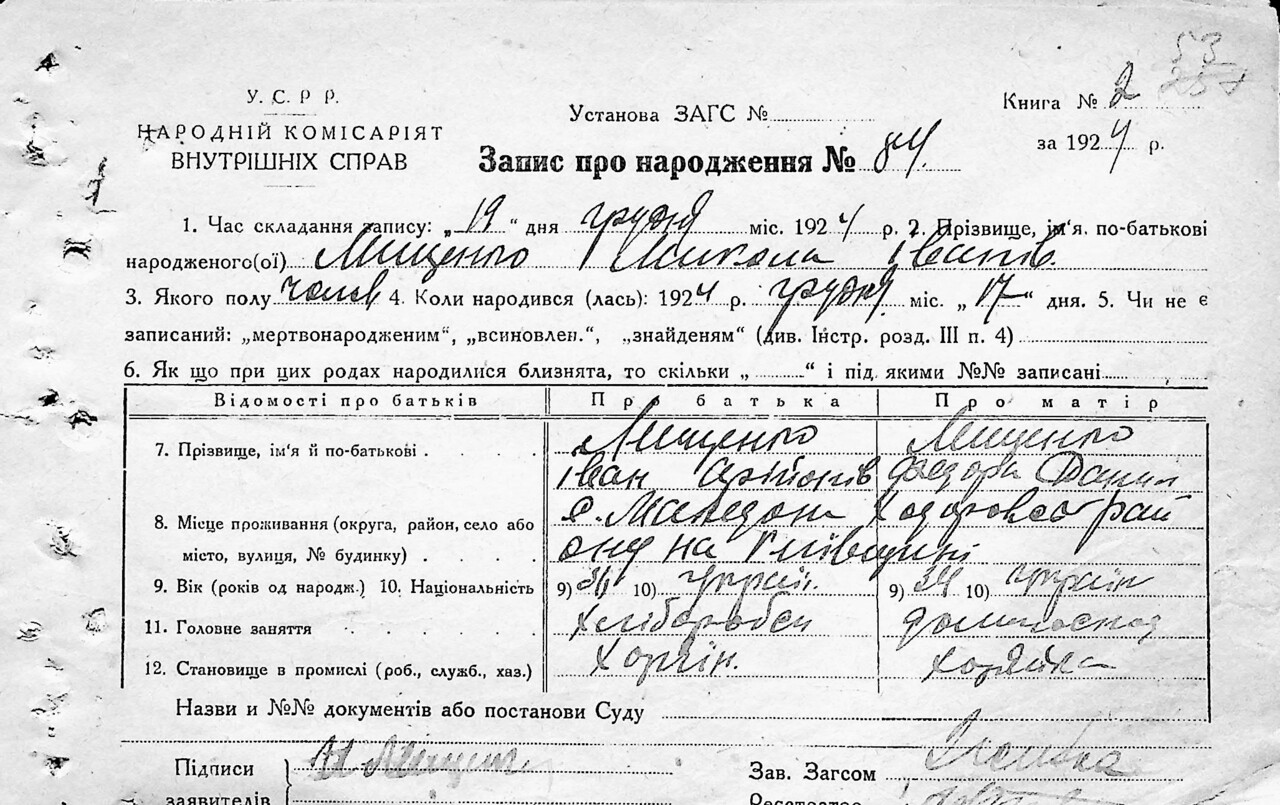 53
У. С. Р Р.
НАРОДНІЙ КОМІСАРІЯТ
ВНУТРІШНІХ СПРАВ
Установа ЗАГС №
Книга № 2
за 1924 р.
Запис про народження № 84.
1. Час складання запису: „19“ дня грудня міс. 1924 р. 2. Прізвище, ім‘я. по-батькові
народженого(ої) Мищенко Микола Іванів
3. Якого полу чолов 4. Коли народився (лась): 1924 р. грудня міс. „17“ дня. 5. Чи не є
записаний: „мертвонародженим“, „всиновлен.“, „знайденям“ (див. Інстр. розд. III п. 4)
6. Як що при цих родах народилися близнята, то скільки „ “ і під якими №№ записані
Відомості про батьків Про батька Про матір
7. Прізвище, ім‘я й по-батькові Мищенко Мищенко
Іван Федора Данил
8. Місце проживання (округа, район, село або с. Македони Ходоровсог рай
місто, вулиця, № будинку) ону на Київщині
9. Вік (років од народж.) 10. Національність 9) 10) україн. 9) 24 10) україн
11. Головне заняття Хліборобси домигоспод
12. Становище в промислі (роб., служб., хаз.) Хазяїн. хазяйка
Назви и №№ документів або постанови Суду
Підписи
заявителів
И Мищен
Зав. Загсом
Реєстратор